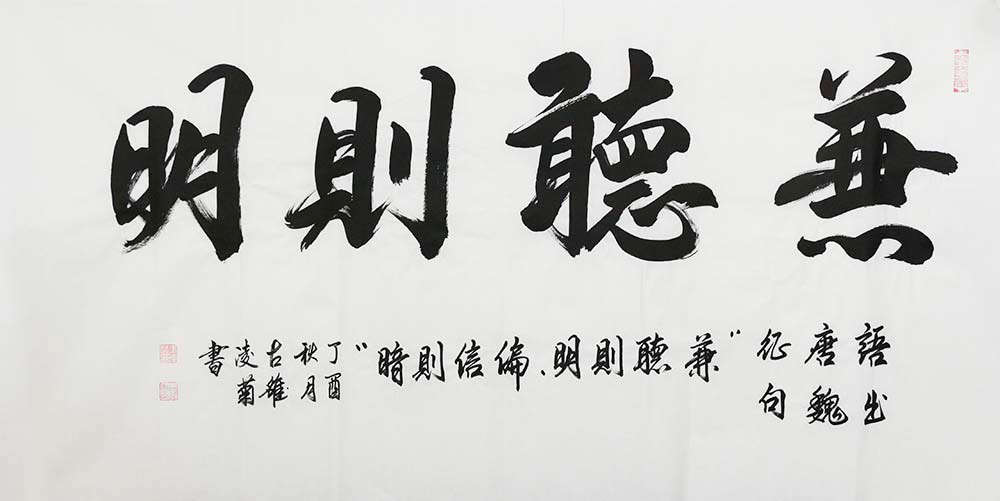 兼聽則明
語出
唐魏
征句
“兼聽則明、偏信則暗”
丁酉
秋月
古雒
凌菊
書